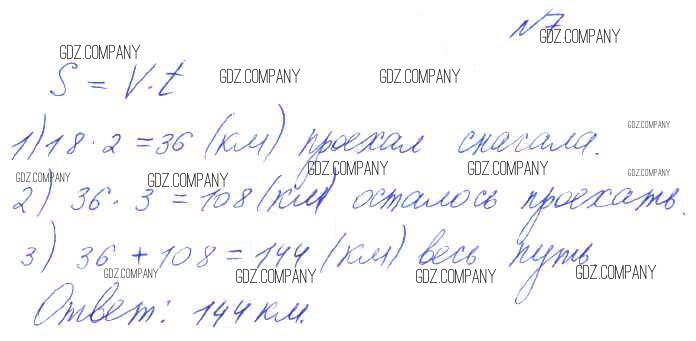 №7
GDZ.COMPANY GDZ.COMPANY
S = V·t GDZ.COMPANY GDZ.COMPANY
1) 18·2 = 36 (км) проехал сначала. GDZ.COMPANY
GDZ.COMPANY GDZ.COMPANY GDZ.COMPANY GDZ.COMPANY GDZ.COMPANY
2) 36·3 = 108 (км) осталось проехать.
3) 36 + 108 = 144 (км) весь путь
GDZ.COMPANY GDZ.COMPANY GDZ.COMPANY GDZ.COMPANY
Ответ: 144 км.